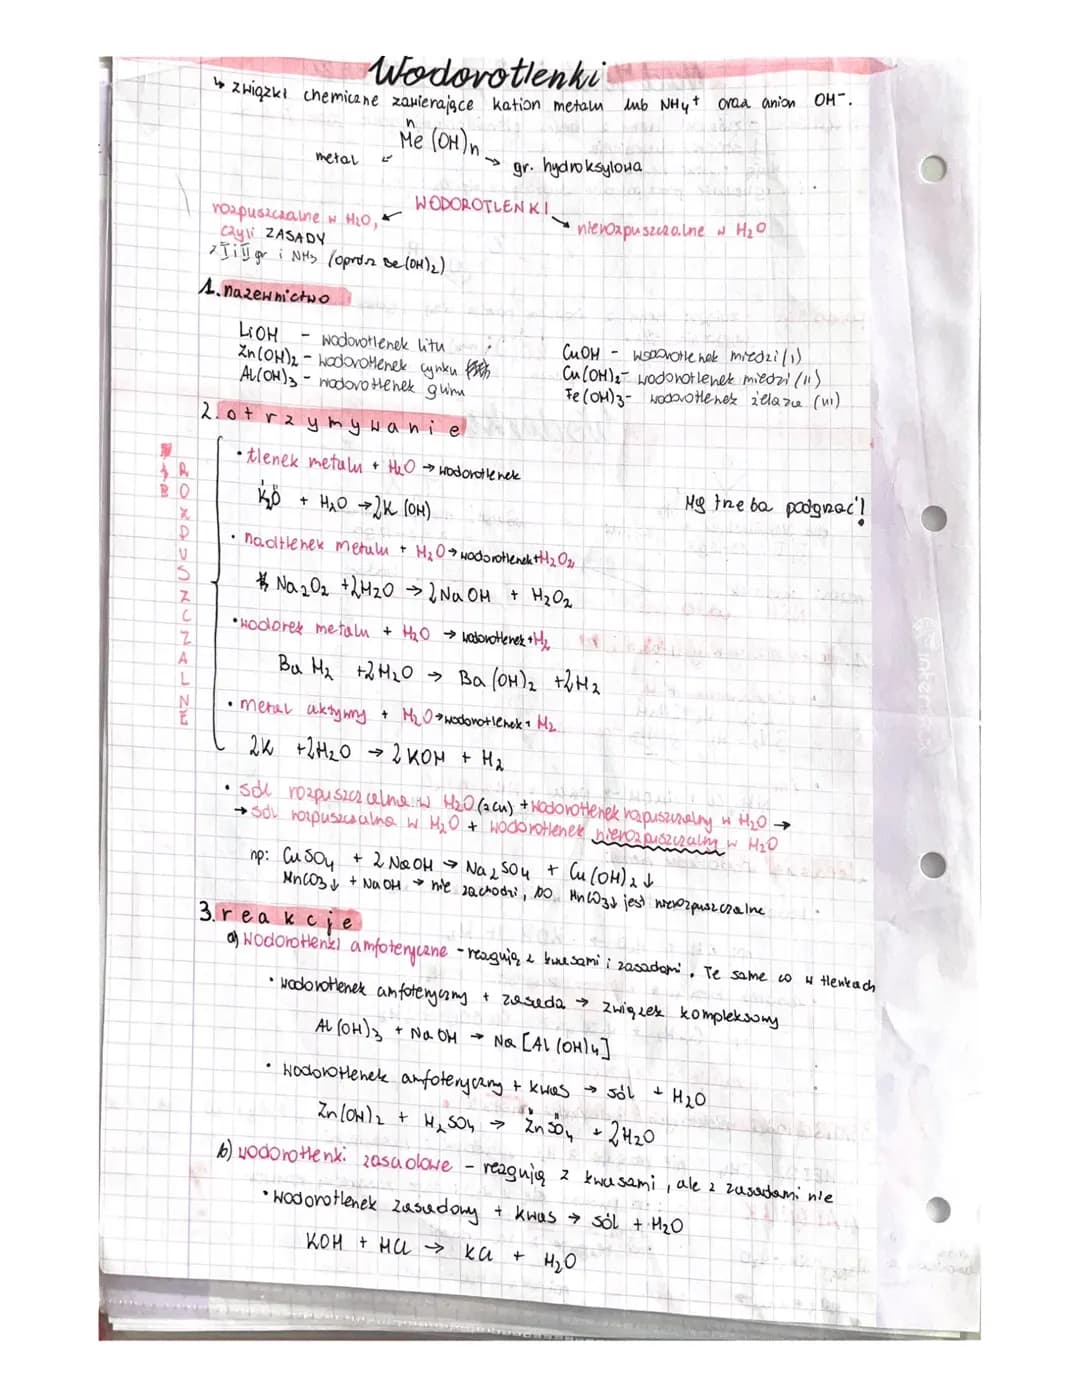 Wodorotlenki
↳ związki chemiczne zawierające kation metalu lub NH₄⁺ oraz anion OH⁻.
n
Me (OH)n
metal ↙ → gr. hydroksylowa
WODOROTLENKI
rozpuszczalne w H₂O,
czyli ZASADY
z I i II gr i NH₃ (oprócz Be(OH)₂)
nierozpuszczalne w H₂O
1. nazewnictwo
LiOH - wodorotlenek litu
Zn(OH)₂ - wodorotlenek cynku
Al(OH)₃ - wodorotlenek glinu
CuOH - wodorotlenek miedzi (I)
Cu(OH)₂ - wodorotlenek miedzi (II)
Fe(OH)₃ - wodorotlenek żelaza (III)
2. otrzymywanie
ROZPUSZCZALNE
• tlenek metalu + H₂O → wodorotlenek
K₂O + H₂O → 2K (OH)
Mg trzeba podgrzać!
• nadtlenek metalu + H₂O → wodorotlenek + H₂O₂
Na₂O₂ + 2H₂O → 2NaOH + H₂O₂
• wodorek metalu + H₂O → wodorotlenek + H₂
BaH₂ + 2H₂O → Ba(OH)₂ + 2H₂
• metal aktywny + H₂O → wodorotlenek + H₂
2K + 2H₂O → 2KOH + H₂
• sól rozpuszczalna w H₂O + wodorotlenek rozpuszczalny w H₂O →
→ sól rozpuszczalna w H₂O + wodorotlenek nierozpuszczalny w H₂O
np: CuSO₄ + 2NaOH → Na₂SO₄ + Cu(OH)₂↓
MnCO₃↓ + NaOH → nie zachodzi, bo MnCO₃↓ jest nierozpuszczalne
3. reakcje
a) wodorotlenki amfoteryczne - reagują z kwasami i zasadami. Te same co w tlenkach
• wodorotlenek amfoteryczny + zasada → związek kompleksowy
Al(OH)₃ + NaOH → Na[Al(OH)₄]
• wodorotlenek amfoteryczny + kwas → sól + H₂O
Zn(OH)₂ + H₂SO₄ → ZnSO₄ + 2H₂O
b) wodorotlenki zasadowe - reagują z kwasami, ale z zasadami nie
• wodorotlenek zasadowy + kwas → sól + H₂O
KOH + HCl → KCl + H₂O